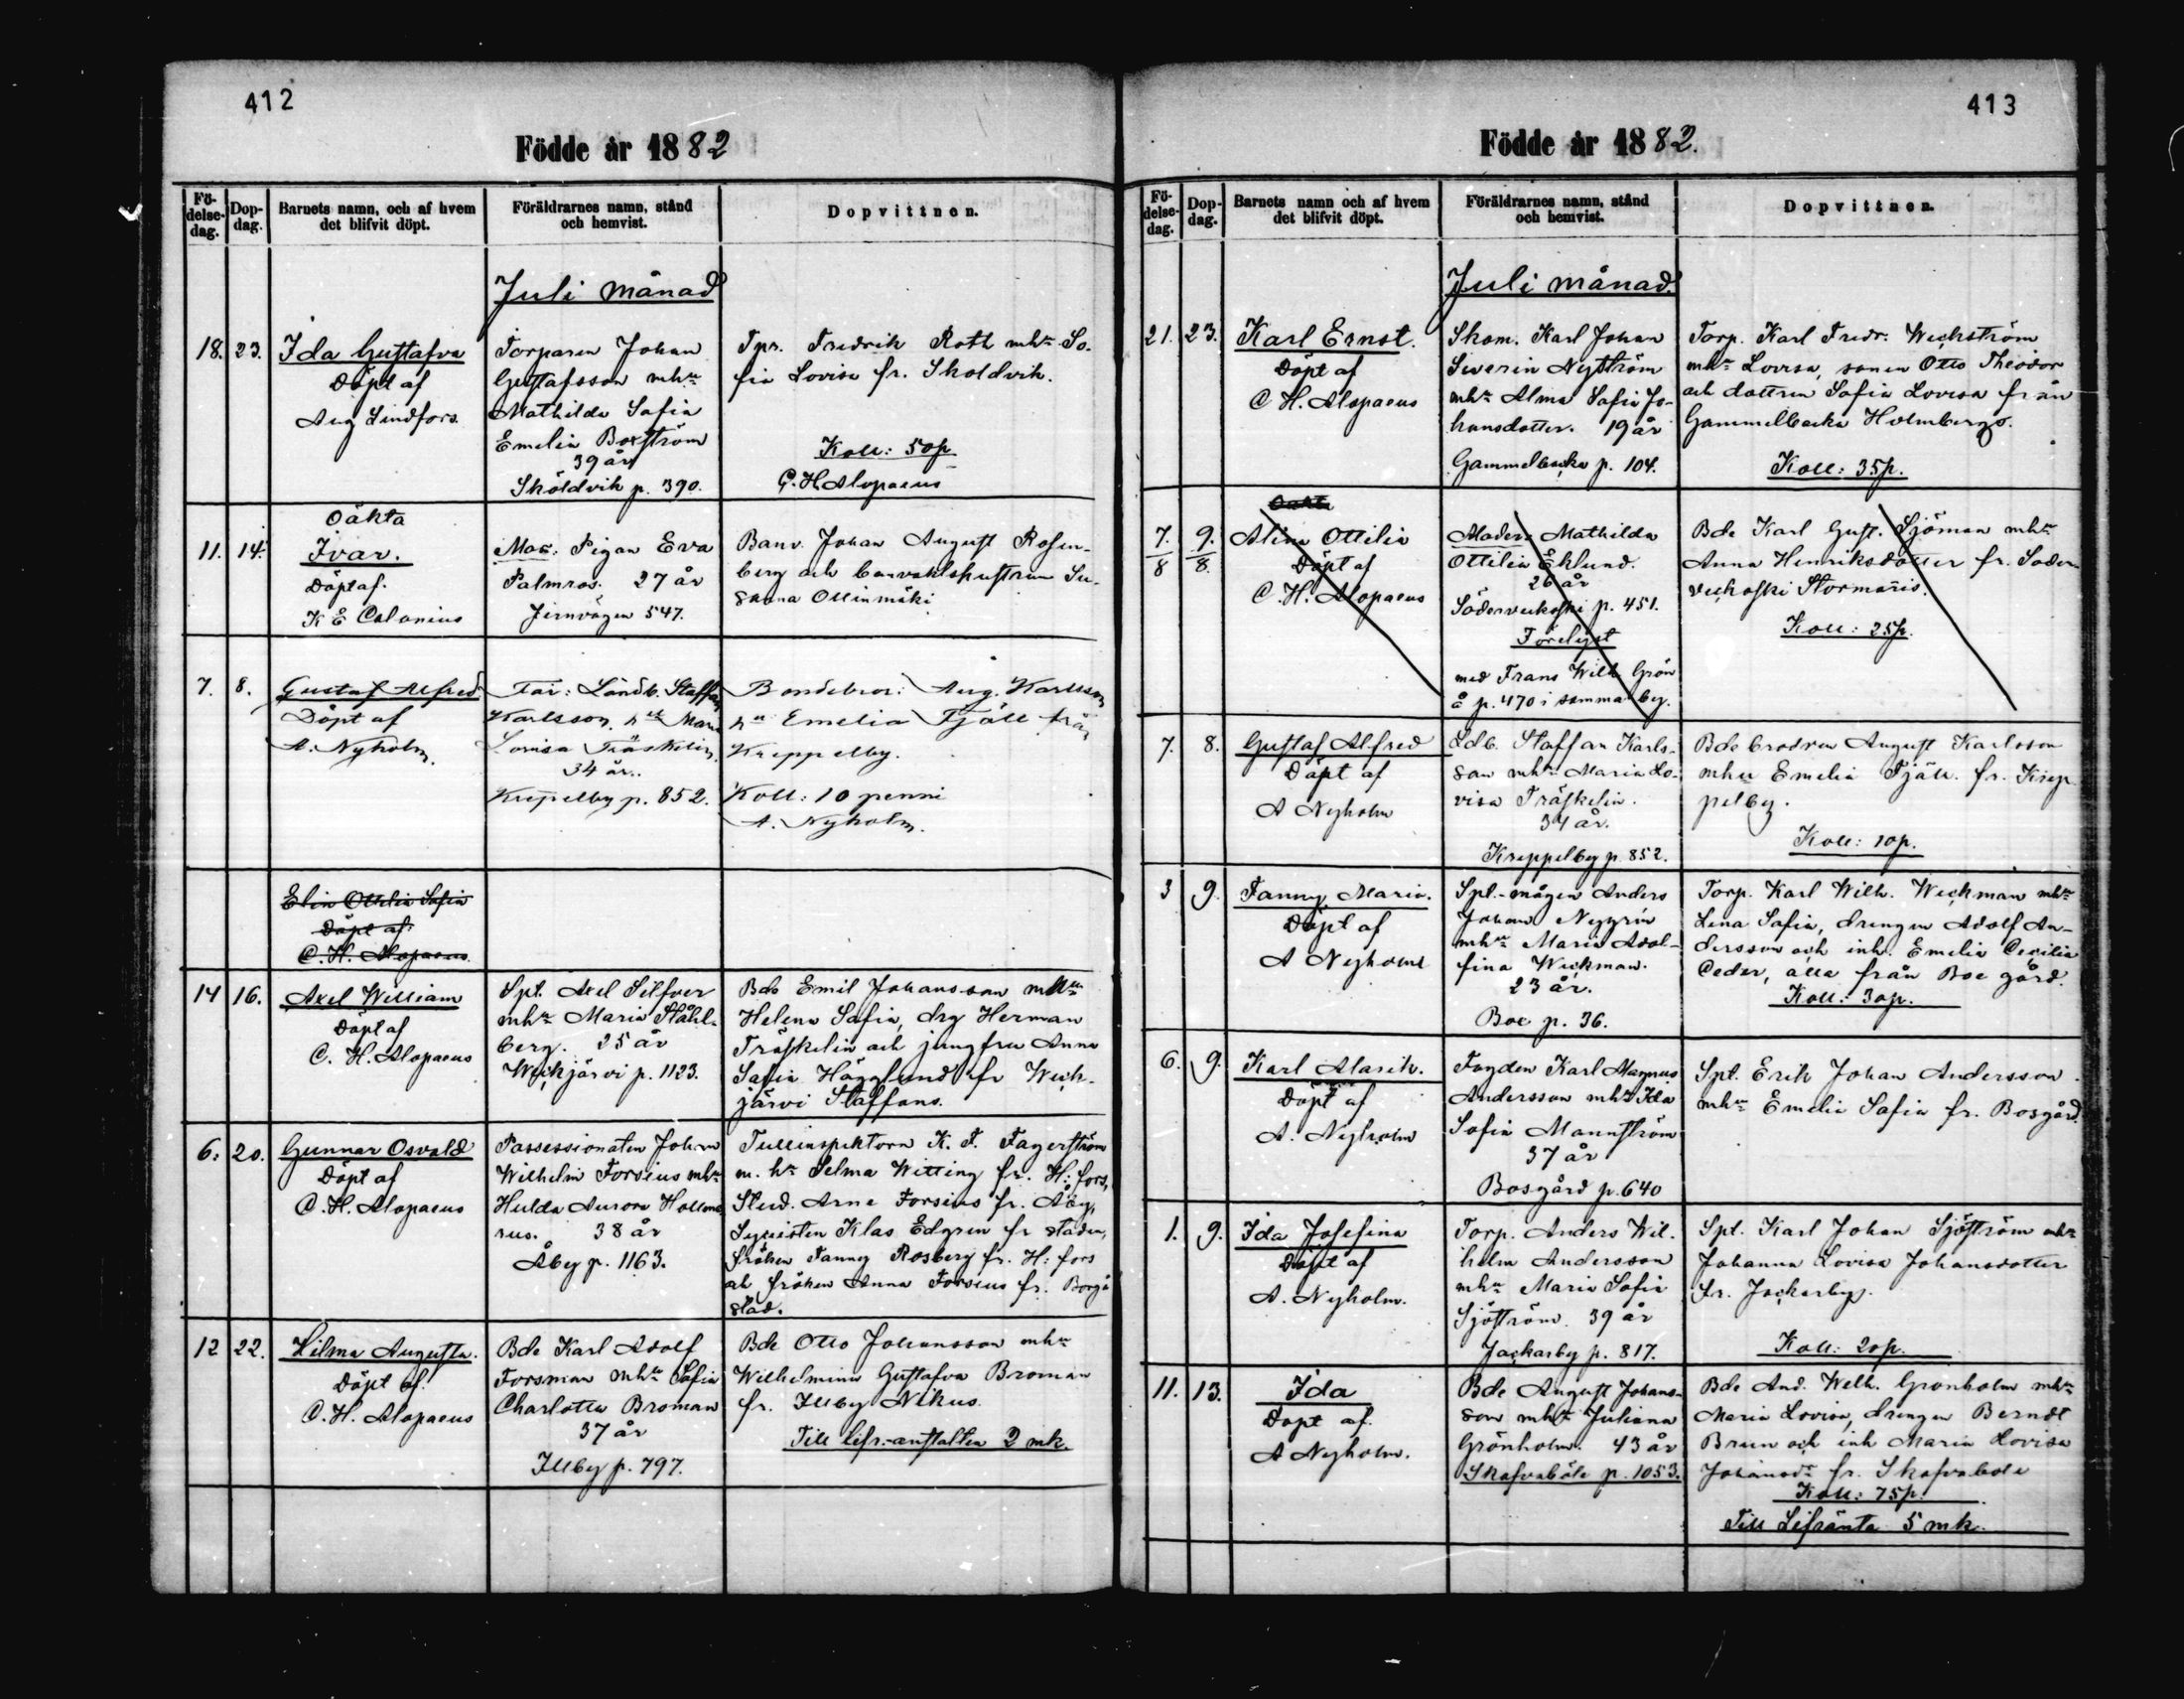 412
Födde år 1882
Fö-
delse-
dag.
Dop-
dag.
Barnets namn, och af hvem
det blifvit döpt.
Föräldrarnes namn, stånd
och hemvist.
Dopvittnen.
Juli månad
18. 23.
Ida Gustafva
Döpt af
Aug Lindfors.
Torparen Johan
Gustafsson mhu
Mathilda Sofia
Emelia Boxström
39 år
Sköldvik p. 390.
Tpr. Fredrik Roth mhu So-
fia Lovisa fr. Sköldvik.
Koll: 50p
C. H. Alopaeus
11. 14.
Oäkta
Ivar.
Döpt af.
K E Calonius
Mod: Pigan Eva
Palmros. 27 år
Jernvägen 547.
Banv. Johan August Rosen-
berg och banvaktshustrun Su-
sanna Ollinmäki
7. 8.
Gustaf Alfred
Döpt af
A. Nyholm.
Far: Landb. Staffan
Karlsson, hu Maria
Lovisa Träskelin,
34 år.
Kreppelby p. 852.
Bondebror: Aug. Karlsson
hu Emelia Fjäll från
Kreppelby.
Koll: 10 penni
A. Nyholm.
Elin Ottilia Sofia
Döpt af
C. H. Alopaeus
14 16.
Axel William
Döpt af
C. H. Alopaeus
Spt. Axel Silfver
mhu Maria Ståhl-
berg. 25 år
Weckjärvi p. 1123.
Bde Emil Johansson mhu
Helena Sofia, drg Herman
Träskelin och jungfru Anna
Sofia Hägglund fr Weck-
järvi Staffans.
6. 20.
Gunnar Osvald
Döpt af
C. H. Alopaeus
Possessionaten Johan
Wilhelm Forsius mhu
Hulda Aurora Hollme
rus. 38 år
Åby p. 1163.
Tullinspektorn K. F. Fagerström
m. hu Selma Witting fr. H:fors,
Stud. Arne Forsius fr. Åby,
Lyceisten Klas Edgren fr staden,
fröken Fanny Rosberg fr. H:fors
och fröken Anna Forsius fr. Borgå
stad.
12 22.
Hilma Augusta.
Döpt af.
C. H. Alopaeus
Bde Karl Adolf
Forsman mhu Sofia
Charlotta Broman
37 år
Illby p. 797.
Bde Otto Johansson mhu
Wilhelmina Gustafva Broman
fr. Illby Nikus.
Till lifr.-anstalten 2 mk.
413
Födde år 1882.
Fö-
delse-
dag.
Dop-
dag.
Barnets namn och af hvem
det blifvit döpt.
Föräldrarnes namn, stånd
och hemvist.
Dopvittnen.
Juli månad.
21. 23.
Karl Ernst.
Döpt af
C H. Alopaeus
Skom. Karl Johan
Severin Nyström
mhu Alma Sofia Jo-
hansdotter. 19 år
Gammelbacka p. 104.
Torp. Karl Fredr. Weckström
mhu Lovisa, sonen Otto Theodor
och dottren Sofia Lovisa från
Gammelbacka Holmbergs.
Koll: 35p.
7./8 9./8.
Oäkta
Alina Ottilia
Döpt af
C. H. Alopaeus
Moder: Mathilda
Ottilia Eklund.
26 år
Söderveckoski p. 451.
Förelyst
med Frans Wilh Grön
å p. 470 i samma by.
Bde Karl Gust. Sjöman mhu
Anna Henriksdotter fr. Söder-
veckoski Stormäns.
Koll: 25p.
7. 8.
Gustaf Alfred
Döpt af
A Nyholm
Ldb. Staffan Karls-
son mhu Maria Lo-
visa Träskelin.
34 år.
Kreppelby p. 852.
Bde brodren August Karlsson
mhu Emelia Fjäll. fr. Krep-
pelby.
Koll: 10p.
3 9.
Fanny Maria.
Döpt af
A Nyholm
Spt.-mågen Anders
Johan Nygrén
mhu Maria Adol-
fina Weckman.
23 år.
Boe p. 36.
Torp. Karl Wilh. Weckman mhu
Lena Sofia, drengen Adolf An-
dersson och inh. Emelia Cecilia
Ceder, alla från Boe gård.
Koll: 30p.
6. 9.
Karl Alarik.
Döpt af
A. Nyholm
Fogden Karl Magnus
Andersson mhu Ida
Sofia Mannström
37 år
Bosgård p. 640
Spt. Erik Johan Andersson
mhu Emelia Sofia fr. Bosgård.
1. 9.
Ida Josefina
Döpt af
A. Nyholm.
Torp. Anders Wil-
helm Andersson
mhu Maria Sofia
Sjöström. 39 år
Jackarby p. 817.
Spt. Karl Johan Sjöström mhu
Johanna Lovisa Johansdotter
fr. Jackarby.
Koll: 20p.
11. 13.
Ida
Döpt af.
A Nyholm.
Bde August Johans-
son mhu Juliana
Grönholm. 43 år
Skafvaböle p. 1053.
Bde And. Welh. Grönholm mhu
Maria Lovisa, drengen Berndt
Brun och inh Maria Lovisa
Johansdr fr. Skafvaböle
Koll: 75p.
Till Lifränta 5 mk.